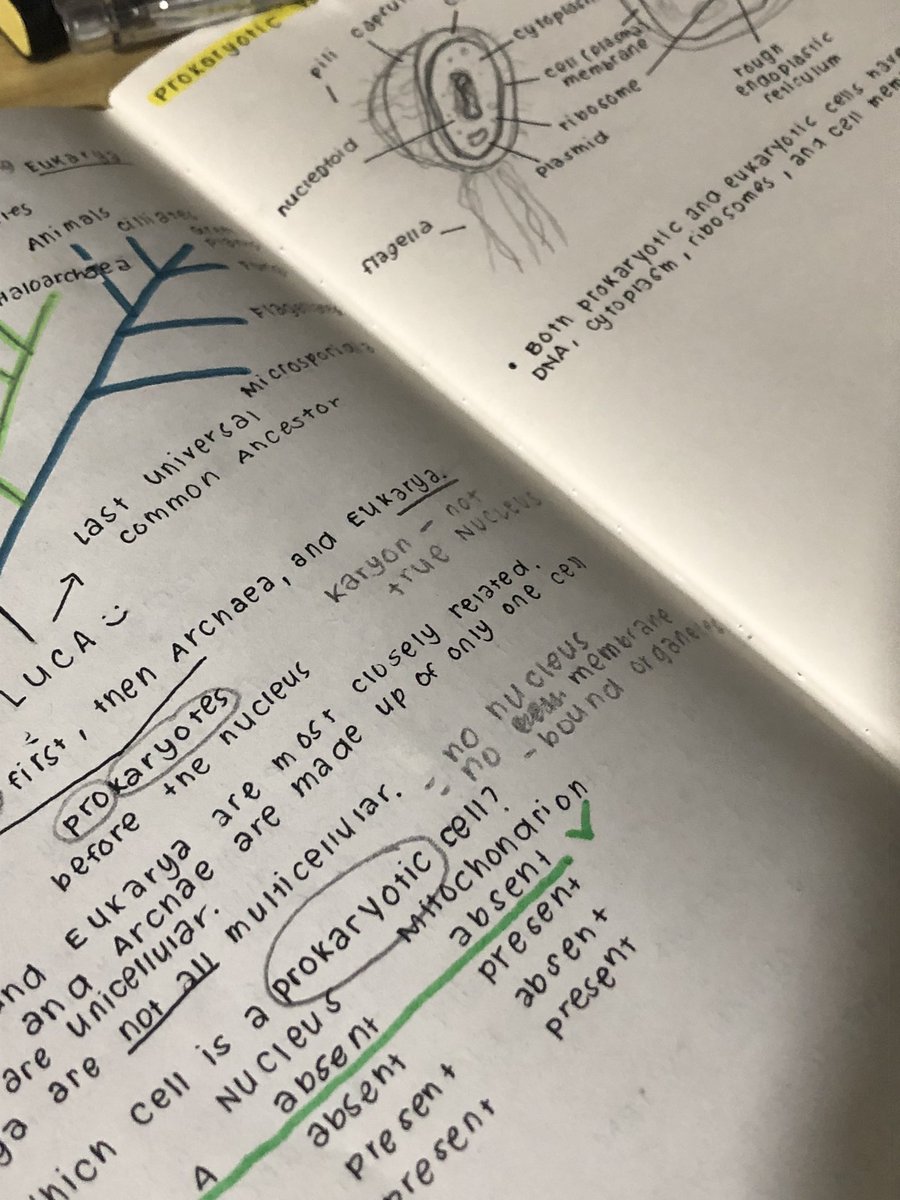 Prokaryotic
pili
capsu
cytoplas
cell (plasma
membrane
ribosome
plasmid
nucleoid
flagella
rough
endoplastic
reticulum
• Both prokaryotic and eukaryotic cells have
DNA, cytoplasm, ribosomes, and cell mem
Eukarya
Animals
ciliates
Haloarchaea
Microsporidia
Last universal
common Ancestor
LUCA :)
first, then Archaea, and Eukarya.
karyon - not
true nucleus
prokaryotes
before the nucleus
and Eukarya are most closely related.
and Archae are made up of only one cell
are unicellular.
ya are not all multicellular.
- no nucleus
- no membrane
- bound organelles
which cell is a prokaryotic cell?
Nucleus Mitochondrion
A absent absent ✓
absent present
Present absent
present present